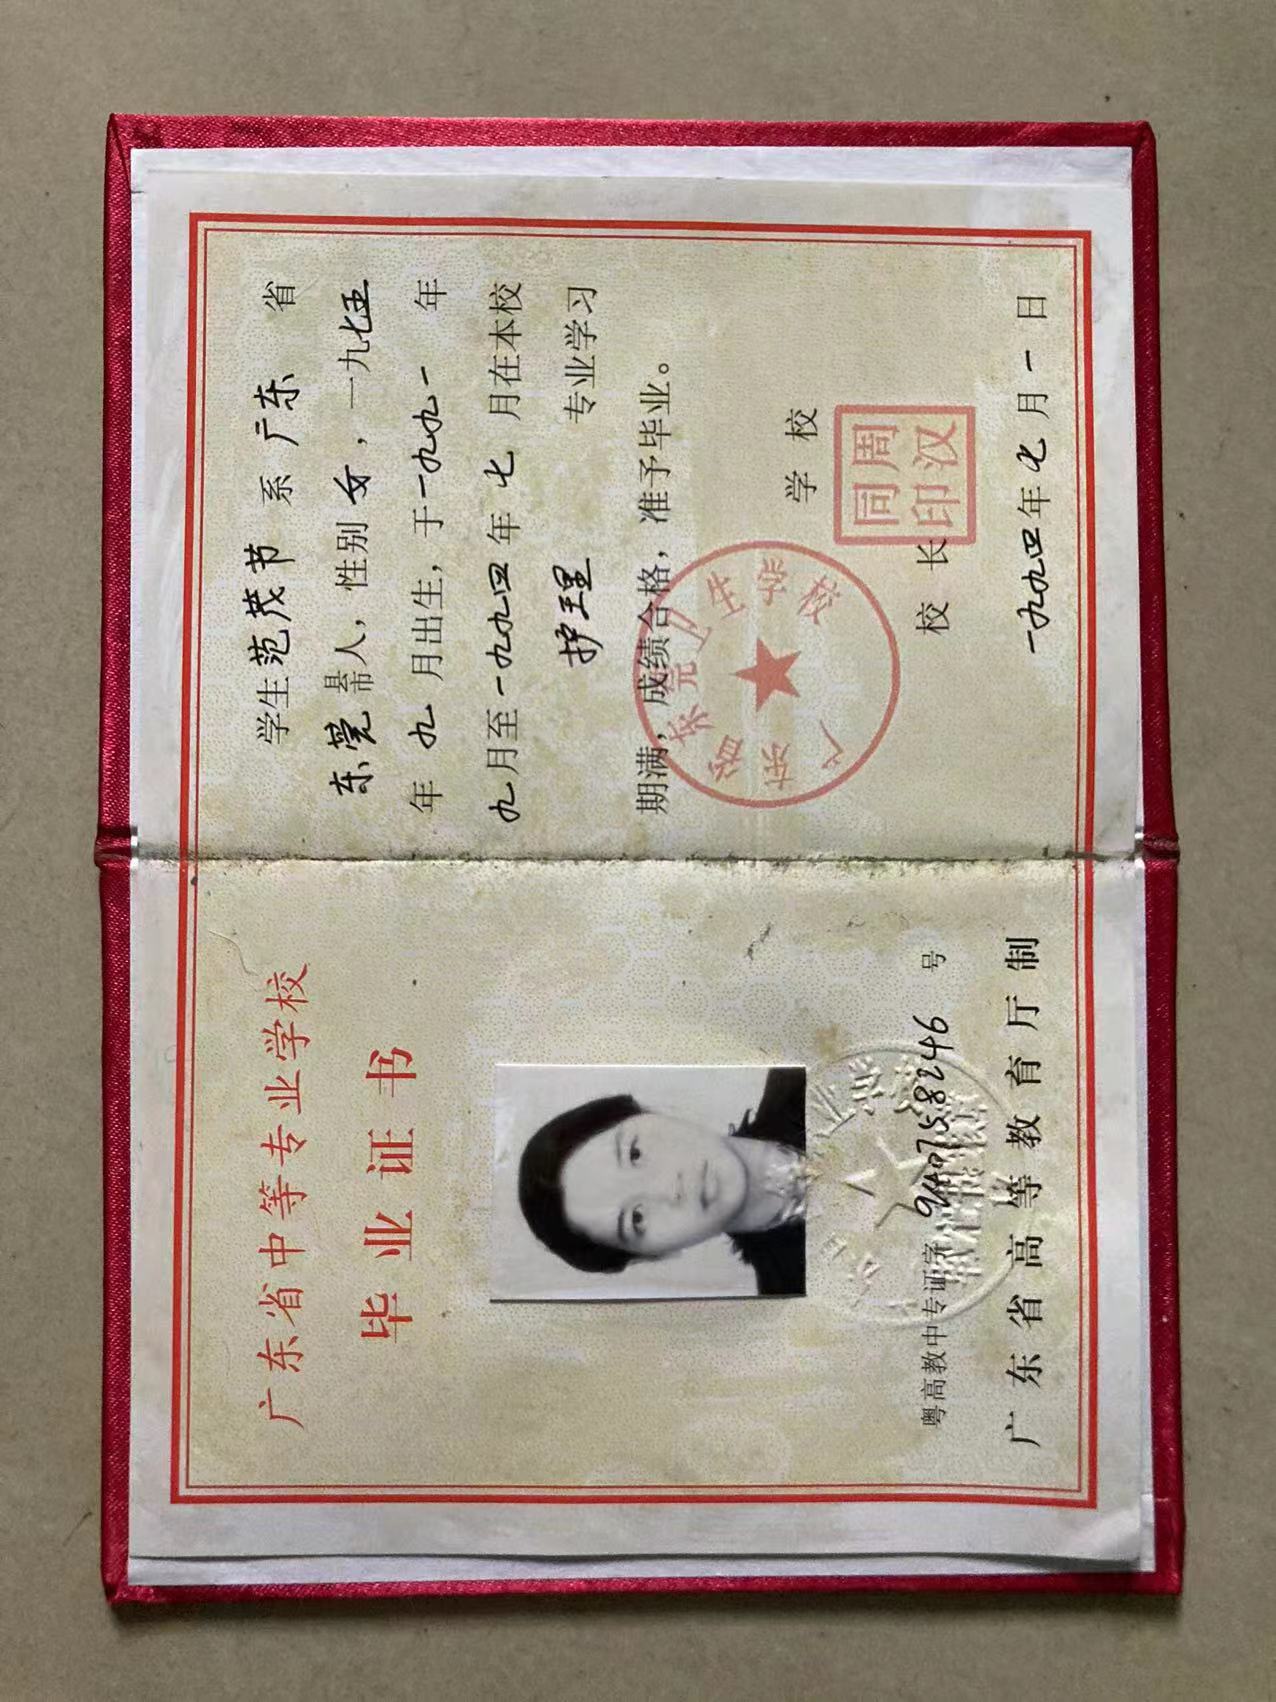 广东省中等专业学校
毕业证书
粤高教中专证字 940758246 号
广东省高等教育厅制
学生范茂节 系广东 省
东莞县市人，性别女，一九七五
年 九 月出生，于一九九一 年
九月至一九九四年 七 月在本校
护理 专业学习
期满，成绩合格，准予毕业。
学 校
广东省东莞卫生学校
校 长
周汉同印
一九九四年七月一日